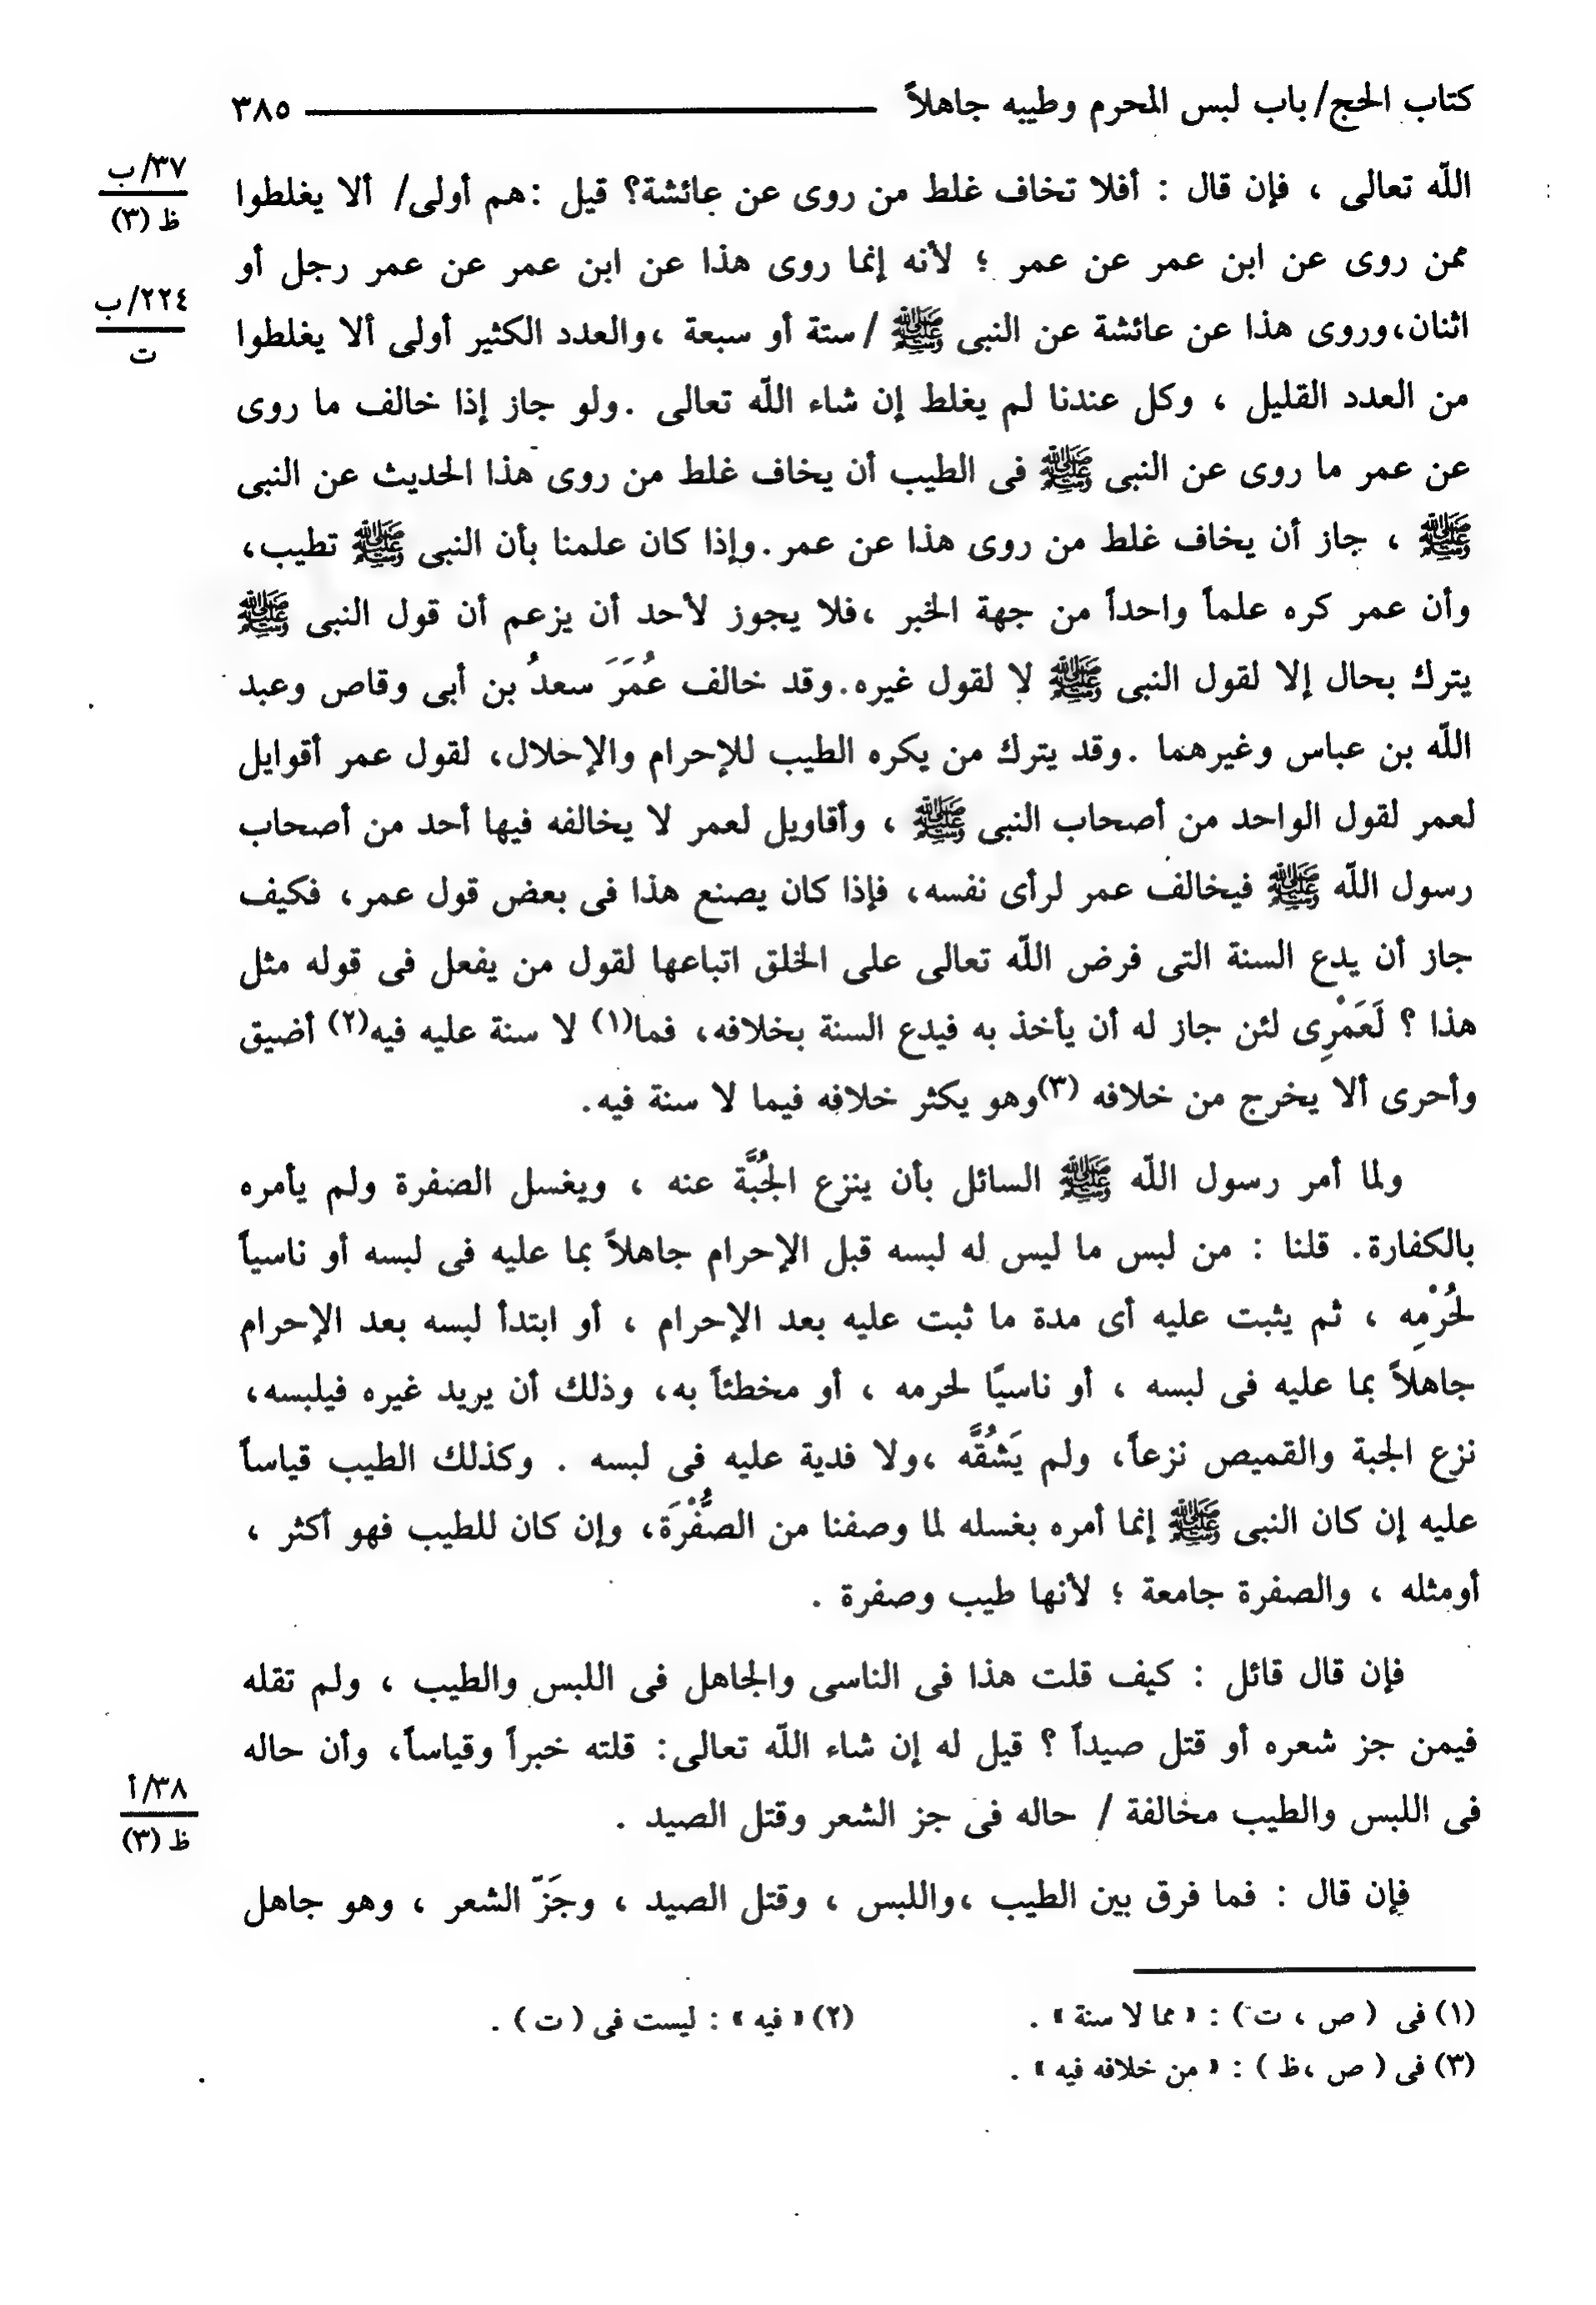 كتاب الحج/ باب لبس المحرم وطيبه جاهلاً ٣٨٥
٣٧/ ب
ظ (٣)
الله تعالى ، فإن قال : أفلا تخاف غلط من روى عن عائشة؟ قيل :هم أولى/ ألا يغلطوا
ممن روى عن ابن عمر عن عمر ؛ لأنه إنما روى هذا عن ابن عمر عن عمر رجل أو
٢٢٤/ ب
ت
اثنان،وروى هذا عن عائشة عن النبى ﷺ /ستة أو سبعة ،والعدد الكثير أولى ألا يغلطوا
من العدد القليل ، وكل عندنا لم يغلط إن شاء الله تعالى .ولو جاز إذا خالف ما روى
عن عمر ما روى عن النبى ﷺ فى الطيب أن يخاف غلط من روى هذا الحديث عن النبى
ﷺ ، جاز أن يخاف غلط من روى هذا عن عمر.وإذا كان علمنا بأن النبى ﷺ تطيب،
وأن عمر كره علماً واحداً من جهة الخبر ،فلا يجوز لأحد أن يزعم أن قول النبى ﷺ
يترك بحال إلا لقول النبى ﷺ لا لقول غيره.وقد خالف عُمَرَ سعدُ بن أبى وقاص وعبد
الله بن عباس وغيرهما .وقد يترك من يكره الطيب للإحرام والإحلال، لقول عمر أقوايل
لعمر لقول الواحد من أصحاب النبى ﷺ ، وأقاويل لعمر لا يخالفه فيها أحد من أصحاب
رسول الله ﷺ فيخالف عمر لرأى نفسه، فإذا كان يصنع هذا فى بعض قول عمر، فكيف
جاز أن يدع السنة التى فرض الله تعالى على الخلق اتباعها لقول من يفعل فى قوله مثل
هذا ؟ لَعَمْرِى لئن جاز له أن يأخذ به فيدع السنة بخلافه، فما(١) لا سنة عليه فيه(٢) أضيق
وأحرى ألا يخرج من خلافه (٣)وهو يكثر خلافه فيما لا سنة فيه.
ولما أمر رسول الله ﷺ السائل بأن ينزع الجُبَّة عنه ، ويغسل الصفرة ولم يأمره
بالكفارة. قلنا : من لبس ما ليس له لبسه قبل الإحرام جاهلاً بما عليه فى لبسه أو ناسياً
لحُرْمِه ، ثم يثبت عليه أى مدة ما ثبت عليه بعد الإحرام ، أو ابتدأ لبسه بعد الإحرام
جاهلاً بما عليه فى لبسه ، أو ناسيًا لحرمه ، أو مخطئاً به، وذلك أن يريد غيره فيلبسه،
نزع الجبة والقميص نزعاً، ولم يَشُقَّه ،ولا فدية عليه فى لبسه . وكذلك الطيب قياساً
عليه إن كان النبى ﷺ إنما أمره بغسله لما وصفنا من الصُّفْرَة، وإن كان للطيب فهو أكثر ،
أومثله ، والصفرة جامعة ؛ لأنها طيب وصفرة .
فإن قال قائل : كيف قلت هذا فى الناسى والجاهل فى اللبس والطيب ، ولم تقله
فيمن جز شعره أو قتل صيداً ؟ قيل له إن شاء الله تعالى: قلته خبراً وقياساً، وأن حاله
٣٨/ أ
ظ (٣)
فى اللبس والطيب مخالفة / حاله فى جز الشعر وقتل الصيد .
فإن قال : فما فرق بين الطيب ،واللبس ، وقتل الصيد ، وجَزّ الشعر ، وهو جاهل
(١) فى ( ص ، ت ) : « مما لا سنة » . (٢) « فيه » : ليست فى ( ت ) .
(٣) فى ( ص ،ظ ) : « من خلافه فيه » .